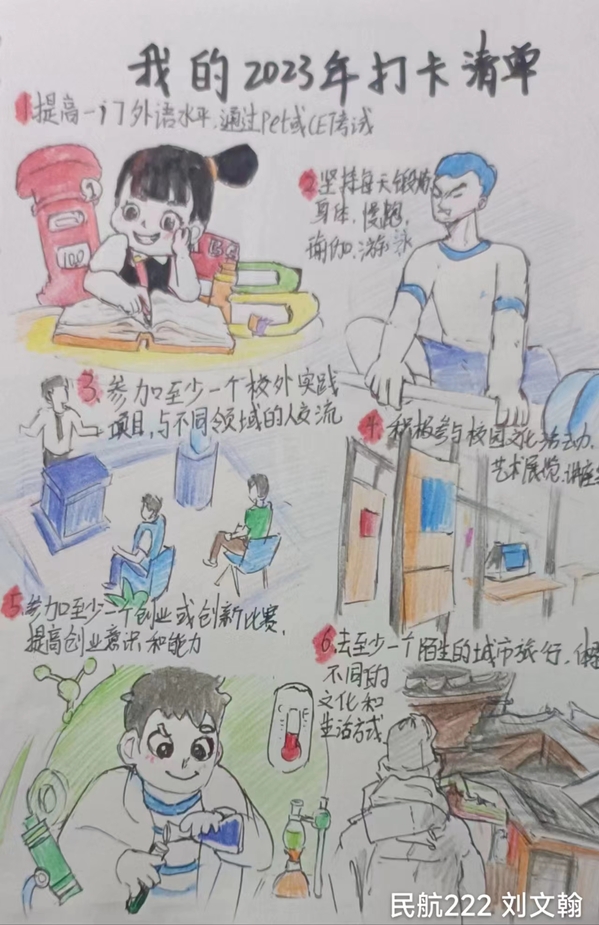 我的2023年打卡清单
1.提高一门外语水平,通过Pet或CET考试
2.坚持每天锻炼
身体,慢跑,
瑜伽,游泳
3.参加至少一个校外实践
项目,与不同领域的人交流
4.积极参与校园文化活动,
艺术展览,讲座
5.参加至少一个创业或创新比赛,
提高创业意识和能力
6.去至少一个陌生的城市旅行,体
不同的
文化和
生活方式
100
民航222 刘文翰